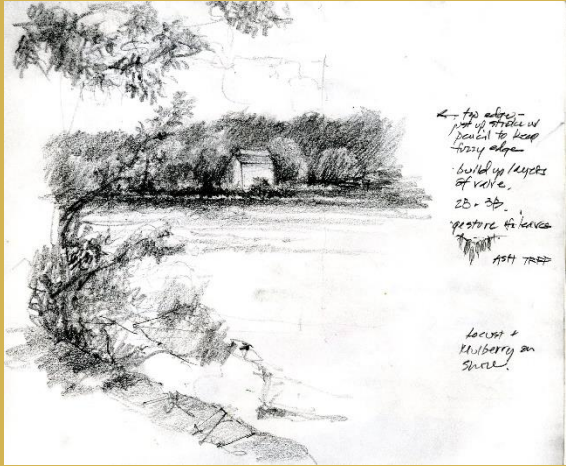 ← top edge -
put up stroke w
pencil to keep
fuzzy edge
· build up layers
of value.
2B - 3B.
gesture for leaves
ASH TREE
Locust +
Mulberry on
shore.